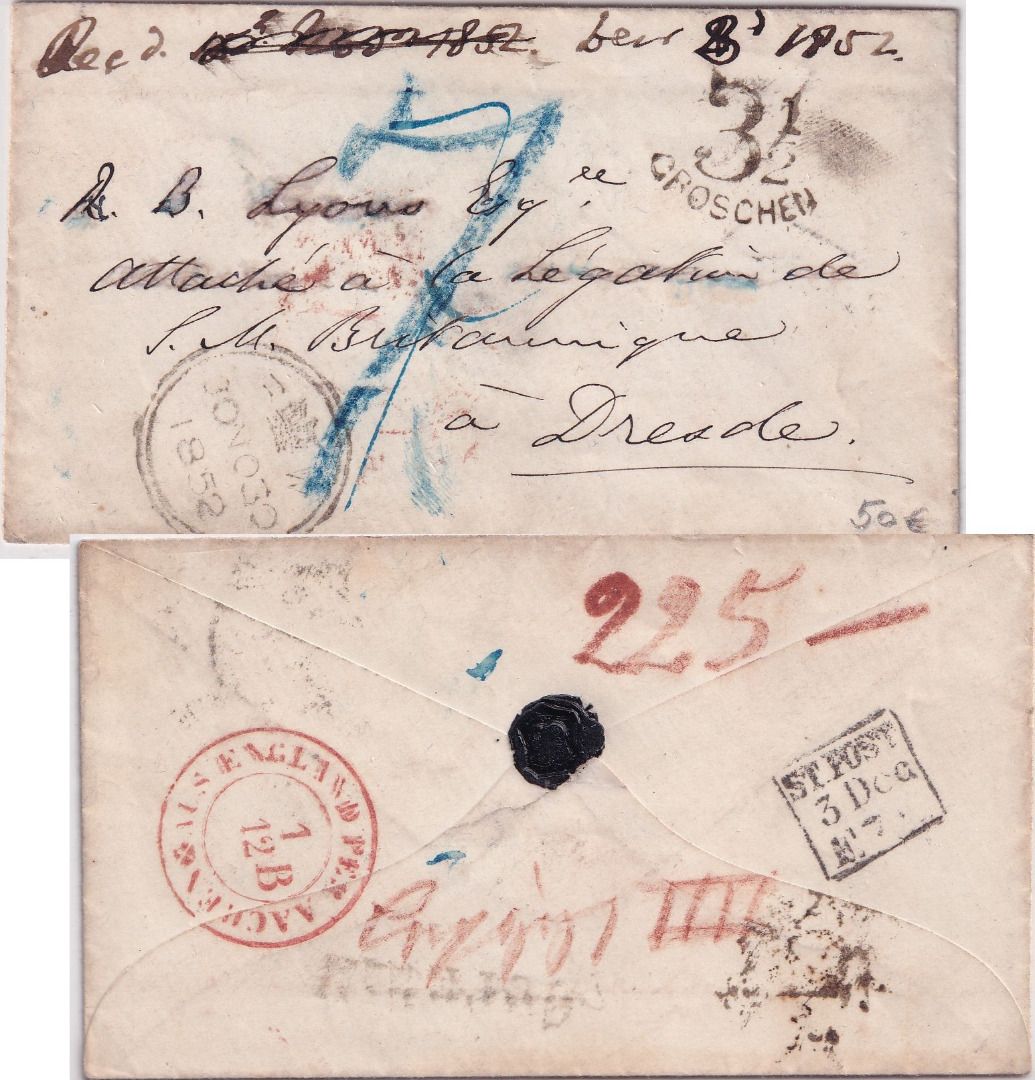 Rec.d. 1852. Decr 3d 1852.
3 1/2
GROSCHEN
7
R. B. Lyons Esqre
attaché à la Légation de
S. M. Britannique
à Dresde.
30 NO 30
1852
50 €
225 —
AUS ENGLAND PER AACHEN
1
12 B
ST. POST
3 Dec
E 7.